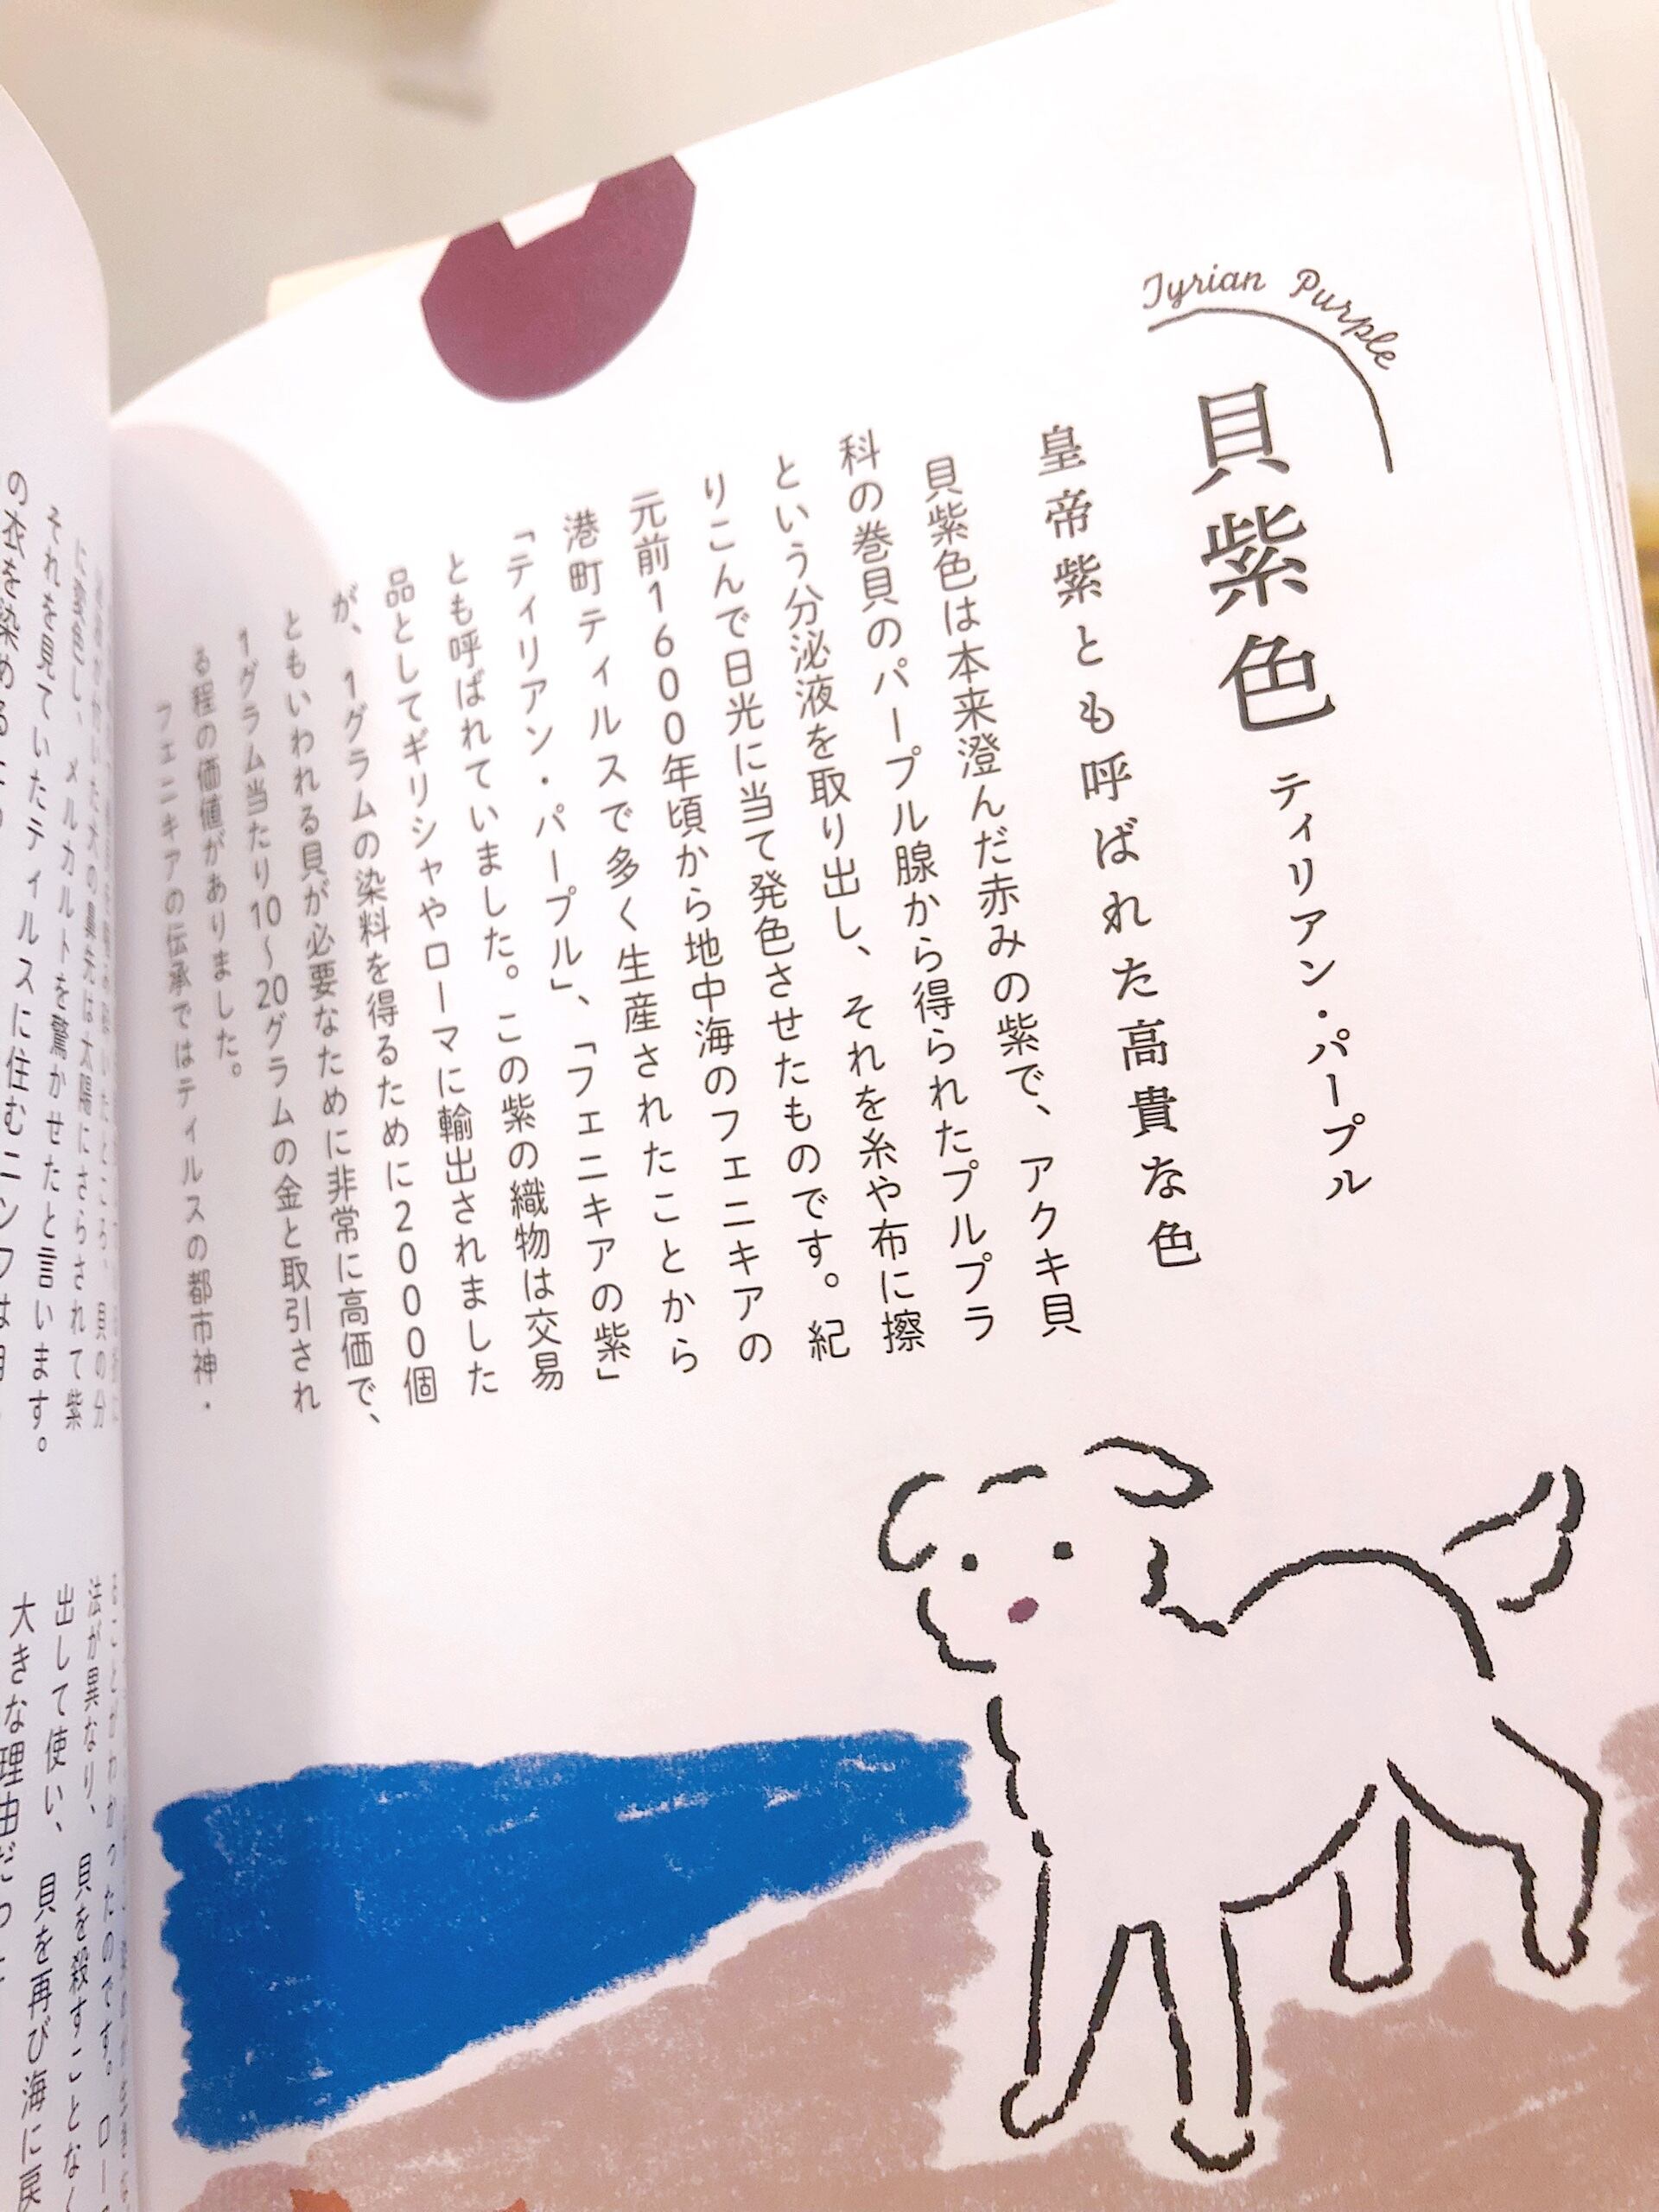 Tyrian Purple
貝紫色 ティリアン・パープル
皇帝紫とも呼ばれた高貴な色
貝紫色は本来澄んだ赤みの紫で、アクキ貝
科の巻貝のパープル腺から得られたプルプラ
という分泌液を取り出し、それを糸や布に擦
りこんで日光に当て発色させたものです。紀
元前1600年頃から地中海のフェニキアの
港町ティルスで多く生産されたことから
「ティリアン・パープル」、「フェニキアの紫」
とも呼ばれていました。この紫の織物は交易
品としてギリシャやローマに輸出されました
が、1グラムの染料を得るために2000個
ともいわれる貝が必要なために非常に高価で、
1グラム当たり10〜20グラムの金と取引され
る程の価値がありました。
フェニキアの伝承ではティルスの都市神・
貝の分
に変色し、メルカルトを驚かせたと言います。
それを見ていたティルスに住むニンフは
の衣を染める
法が異なり、貝を殺すことなく
出して使い、貝を再び海に戻
大きな理由だっ